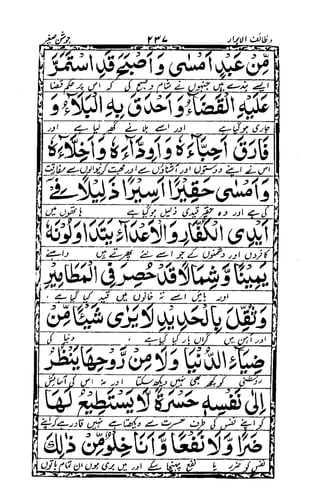 وظائف الابرار ۲۳۷ جوشن صغیر
مِنْ عَبْدٍ اَمْسٰى وَاَصْبَحَ قَدِ اسْتَمَرَّ
ایسے بندے ہیں جنہوں نے شام و صبح کی کہ اس پر حکم قضا
عَلَيْهِ الْقَضَاءُ وَاَحْدَقَ بِهِ الْبَلَاءُ وَ
جاری ہو گیا ہے اور اسے بلا نے گھیر لیا ہے اور
فَارَقَ اَحِبَّاءَهُ وَاَوِدَّاءَهُ وَاَخِلَّاءَهُ
اس نے اپنے دوستوں اور آشناؤں سے اور محبت کرنیوالوں سے مفارقت
وَاَمْسٰى حَقِيْرًا اَسِيْرًا ذَلِيْلًا فِيْ
کی ہے اور وہ حقیر قیدی ذلیل ہو گیا ہے ہاتھوں میں
اَيْدِى الْكُفَّارِ وَالْاَعْدَاءِ يَتَدَاوَلُوْنَهُ
کافروں اور دشمنوں کے جو اسے لئے پھرتے ہیں داہنے
يَمِيْنًا وَشِمَالًا قَدْ حُصِرَ فِى الْمَطَامِيْرِ
اور بائیں اسے تہ خانوں میں قید کیا گیا ہے
وَثُقِّلَ بِالْحَدِيْدِ لَا يَرٰى شَيْئًا مِنْ
اور آہن میں گراں بار کیا گیا ہے دنیا کی
ضِيَاءِ الدُّنْيَا وَلَا مِنْ رَوْحِهَا يَنْظُرُ
روشنی کو کچھ بھی نہیں دیکھ سکتا اور نہ اس کی آسائش
اِلٰى نَفْسِهٖ حَسْرَةً لَا يَسْتَطِيْعُ لَهَا
کو اپنے نفس کی طرف حسرت سے دیکھتا ہے نہیں قادر ہے کہ اپنے
ضَرًّا وَلَا نَفْعًا وَاَنَا خِلْوٌ مِنْ ذٰلِكَ
نفس کو ضرر یا نفع پہنچا سکے اور میں بری ہوں ان تمام باتوں